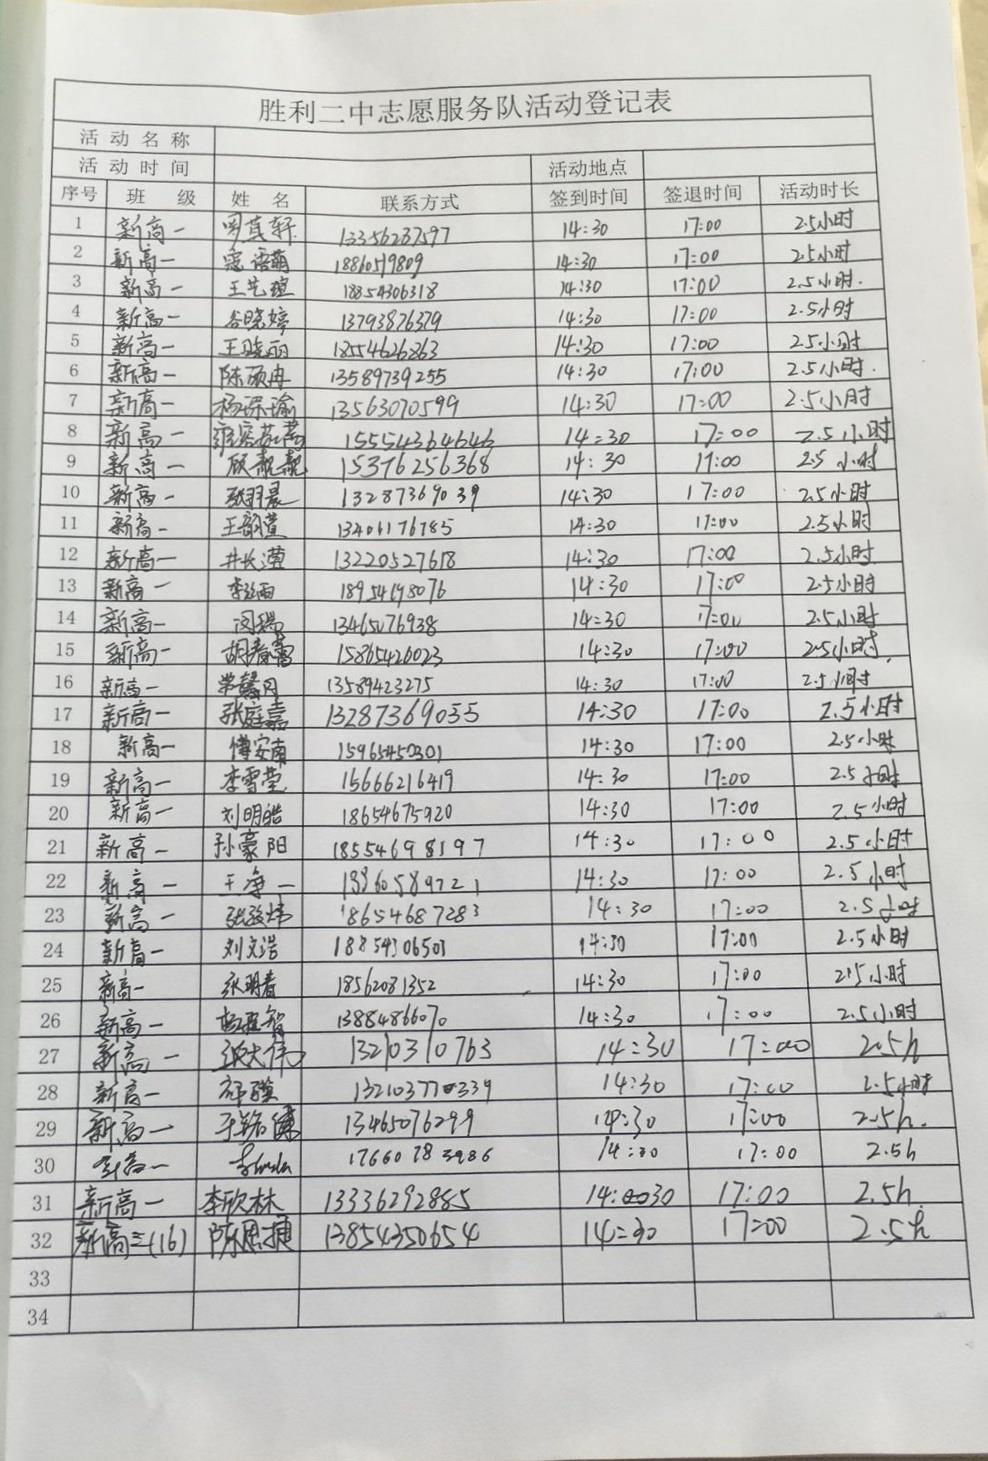 胜利二中志愿服务队活动登记表
活动名称
活动时间 活动地点
序号 班级 姓名 联系方式 签到时间 签退时间 活动时长
1 新高一 13356237597 14:30 17:00 2.5小时
2 新高一 14:30 17:00 2.5小时
3 新高一 王艺璇 18854306318 14:30 17:00 2.5小时.
4 新高一 谷晓婷 13793876379 14:30 17:00 2.5小时
5 新高一 王晓丽 18554626263 14:30 17:00 2.5小时
6 新高一 陈硕冉 13589739255 14:30 17:00 2.5小时.
7 新高一 杨深瑜 13563070599 14:30 17:00 2.5小时
8 新高一 15554364646 14:30 17:00 2.5小时
9 新高一 顾靓靓 15376256368 14:30 17:00 2.5小时
10 新高一 张羽晨 13287369039 14:30 17:00 2.5小时
11 新高一 王韵萱 13406176785 14:30 17:00 2.5小时
12 新高一 井长滢 13220527618 14:30 17:00 2.5小时
13 新高一 18954698076 14:30 17:00 2.5小时
14 新高一 闵瑞 13465076938 14:30 17:00 2.5小时
15 新高一 胡春蕾 15865426023 14:30 17:00 2.5小时.
16 新高一 常馨月 13589423275 14:30 17:00 2.5小时
17 新高一 张庭嘉 13287369055 14:30 17:00 2.5小时
18 新高一 傅安南 15965450301 14:30 17:00 2.5小时
19 新高一 李雪莹 15666216419 14:30 17:00 2.5小时
20 新高一 刘明皓 18654675920 14:30 17:00 2.5小时
21 新高一 孙豪阳 18554698197 14:30 17:00 2.5小时
22 新高一 王海一 18860589721 14:30 17:00 2.5小时
23 新高一 18654687283 14:30 17:00 2.5小时
24 新高一 刘文浩 18854306501 14:30 17:00 2.5小时
25 新高一 张明春 18562081352 14:30 17:00 2.5小时
26 新高一 13884866070 14:30 17:00 2.5小时
27 新高一 张大伟 13210310763 14:30 17:00 2.5h
28 新高一 14:30 17:00 2.5小时
29 新高一 13465076299 14:30 17:00 2.5h.
30 新高一 17660783986 14:30 17:00 2.5h
31 新高一 李欣林 13336292885 14:30 17:00 2.5h
32 新高三(16) 陈恩捷 13854350654 14:30 17:00 2.5h
33
34